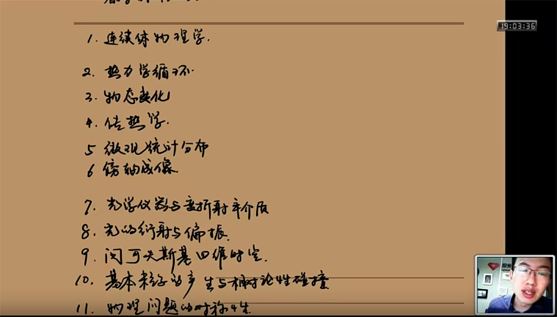 19:03:36
1. 连续体物理学.
2. 热力学循环.
3. 物态变化
4. 传热学.
5 微观统计分布
6 傍轴成像
7. 光学仪器与变折射率介质
8. 光的衍射与偏振.
9. 闵可夫斯基四维时空.
10. 基本粒子的产生与相对论性碰撞
11. 物理问题的对称性